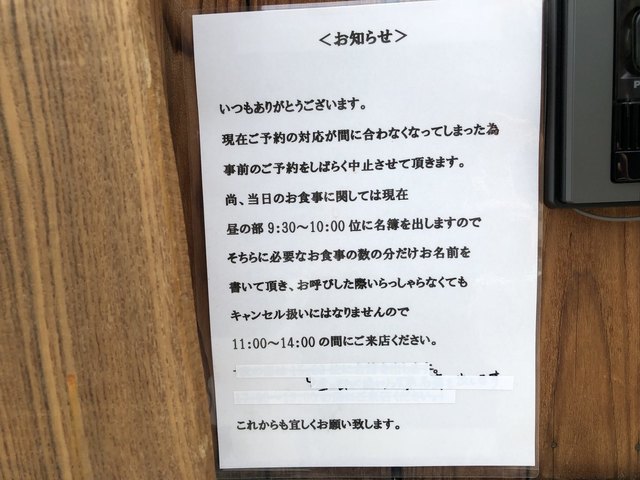 ＜お知らせ＞
いつもありがとうございます。
現在ご予約の対応が間に合わなくなってしまった為
事前のご予約をしばらく中止させて頂きます。
尚、当日のお食事に関しては現在
昼の部 9:30～10:00 位に名簿を出しますので
そちらに必要なお食事の数の分だけお名前を
書いて頂き、お呼びした際いらっしゃらなくても
キャンセル扱いにはなりませんので
11:00～14:00 の間にご来店ください。
これからも宜しくお願い致します。